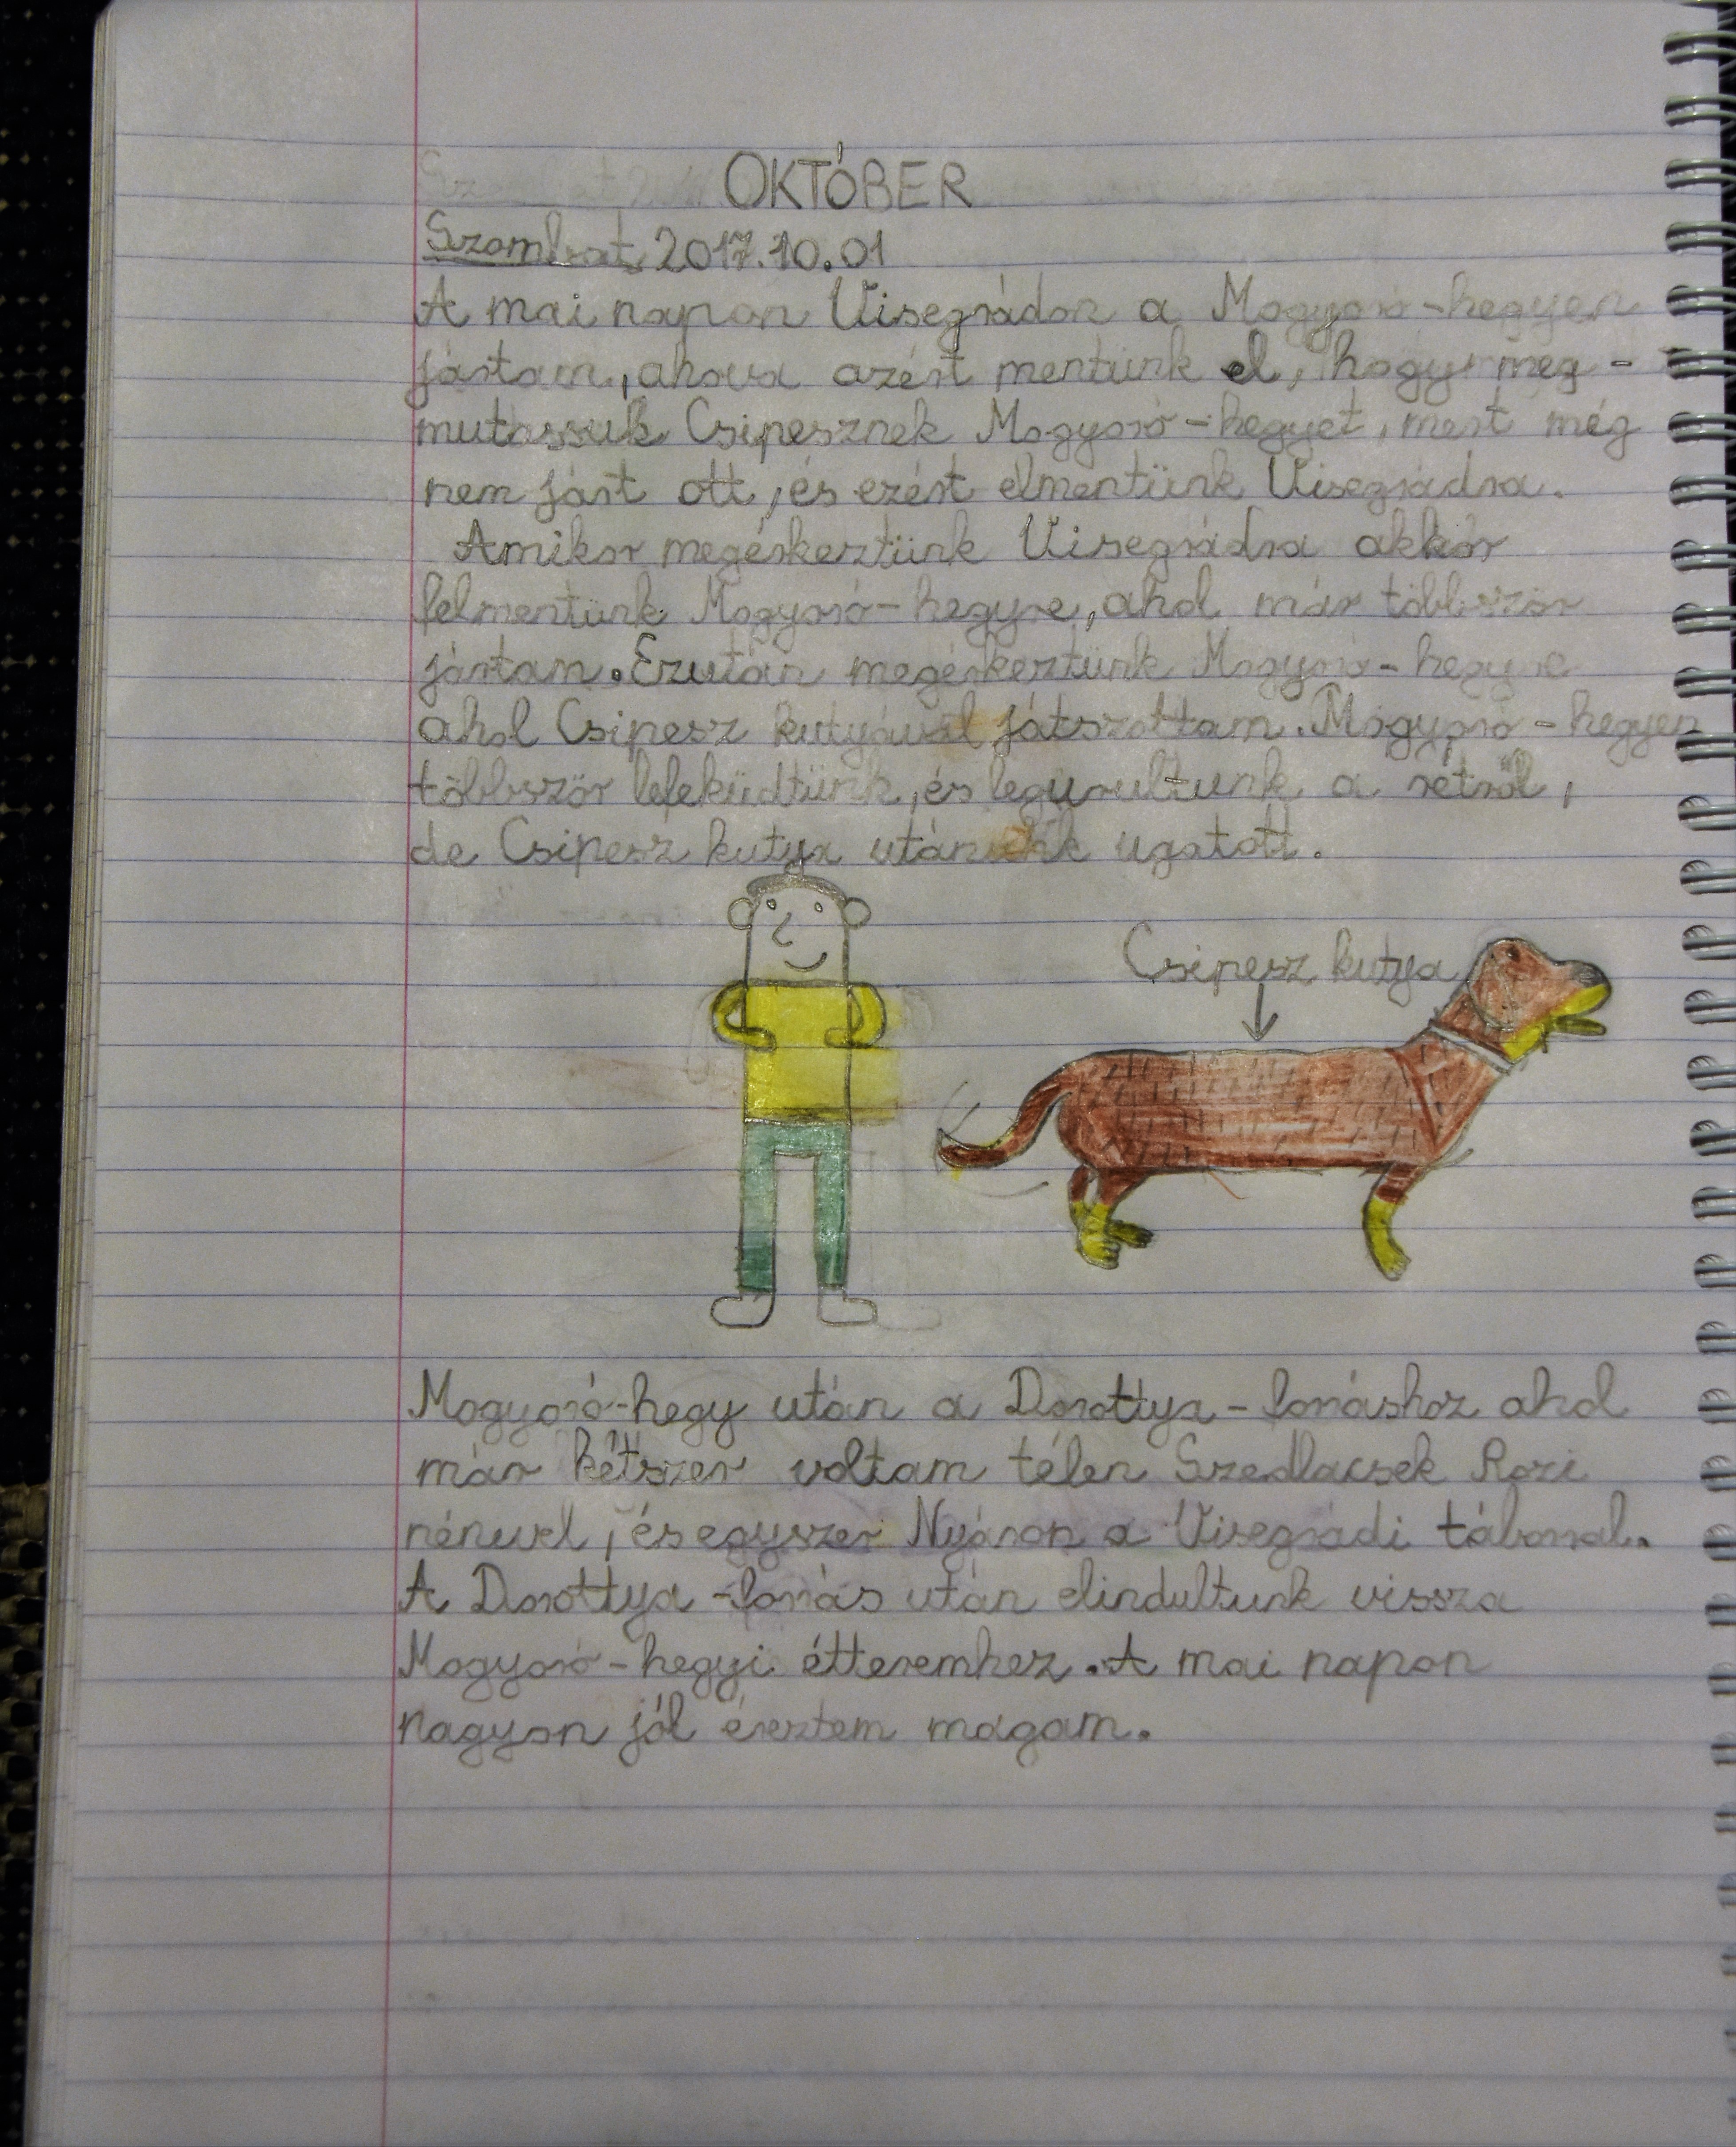 OKTÓBER
Szombat 2017.10.01
A mai napon Visegrádon a Mogyoró-hegyen
jártam, ahova azért mentünk el, hogy meg-
mutassuk Csipesznek Mogyoró-hegyet, mert még
nem járt ott, és ezért elmentünk Visegrádra.
Amikor megérkeztünk Visegrádra akkor
felmentünk Mogyoró-hegyre, ahol már többször
jártam. Ezután megérkeztünk Mogyoró-hegyre
ahol Csipesz kutyával játszottam. Mogyoró-hegyen
többször lefeküdtünk, és legurultunk a rétről,
de Csipesz kutya utánunk ugatott.
Csipesz kutya
Mogyoró-hegy után a Dorottya-forráshoz ahol
már kétszer voltam télen Szedlacsek Rozi
nénivel, és egyszer Nyáron a Visegrádi táborral.
A Dorottya-forrás után elindultunk vissza
Mogyoró-hegyi étteremhez. A mai napon
nagyon jól éreztem magam.